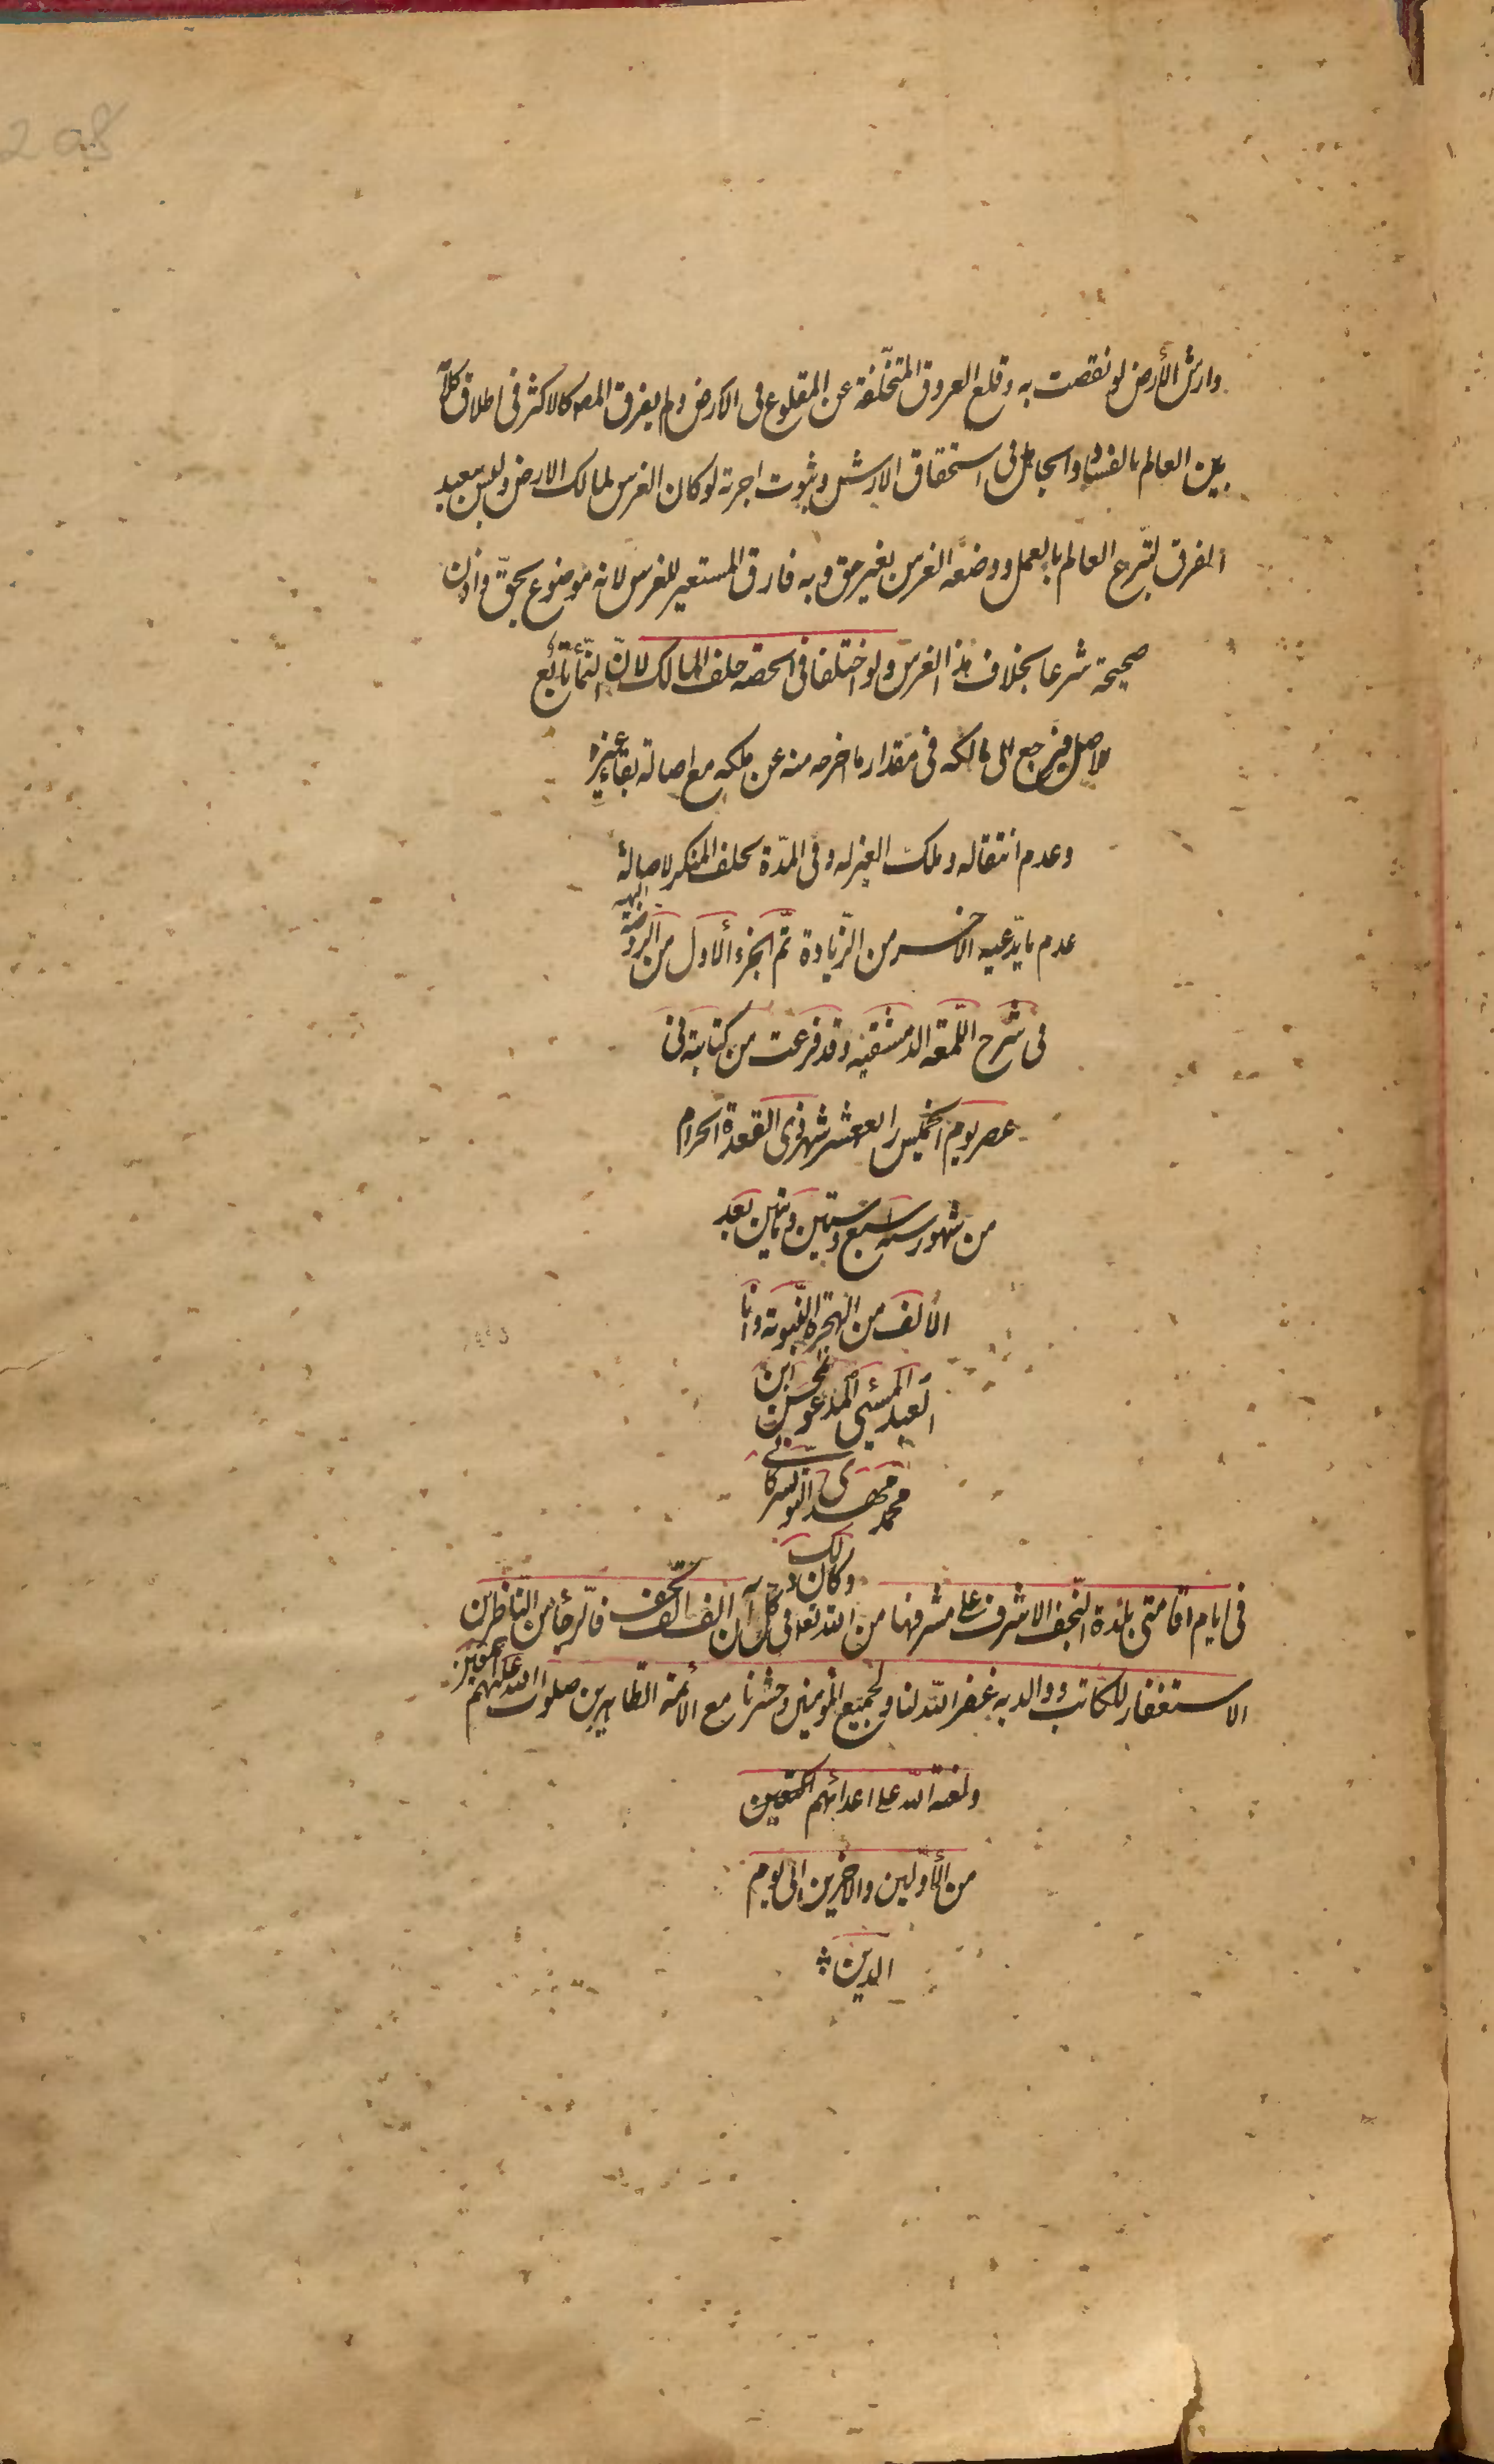 208
وارش الأرض لو نقصت به وقلع العروق المتخلّفة عن المقلوع فى الارض ولم يفرق المص كالاكثر فى اطلاق كلامهم
بين العالم بالفساد والجاهل فى استحقاق الارش وثبوت اجرته لو كان الغرس لمالك الارض وليس ببعيد
الفرق لتبرّع العالم بالعمل ووضعه الغرس بغير حق وبه فارق المستعير للغرس لانه موضوع بحقّ واذن
صحيحة شرعا بخلاف هذا الغرس ولو اختلفا فى الحصه حلف المالك لانّ النّماء تابع
للاصل فيرجع الى مالكه فى مقدار ما اخرجه منه عن ملكه مع اصالة بقاء غيره
وعدم انتقاله وملك الغير له وفى المدّة يحلف المنكر لاصالة
عدم ما يدّعيه الاخر من الزّيادة تمّ الجزء الأول من الروضة البهيه
فى شرح اللّمعة الدمشقيه وقد فرغت من كتابته فى
عصر يوم الخميس رابع عشر شهر ذى القعدة الحرام
من شهور سنه سبع وستين ومأتين بعد
الألف من الهجرة النّبوية وانا
العبد المسيئ المدعو محسن ابن
محمد مهدى التويسركانى
وكان ذلك
فى ايام اقامتى بلدة النّجف الاشرف على مشرفها من الله تعالى فى كل آن الف الف التّحف فالرّجاء من النّاظرين
الاستغفار للكاتب ووالديه غفر الله لنا ولجميع المؤمنين وحشرنا مع الأئمة الطاهرين صلوات الله عليهم اجمعين
ولعنة الله على اعدائهم اجمعين
من الأوّلين والاخرين الى يوم
الدين